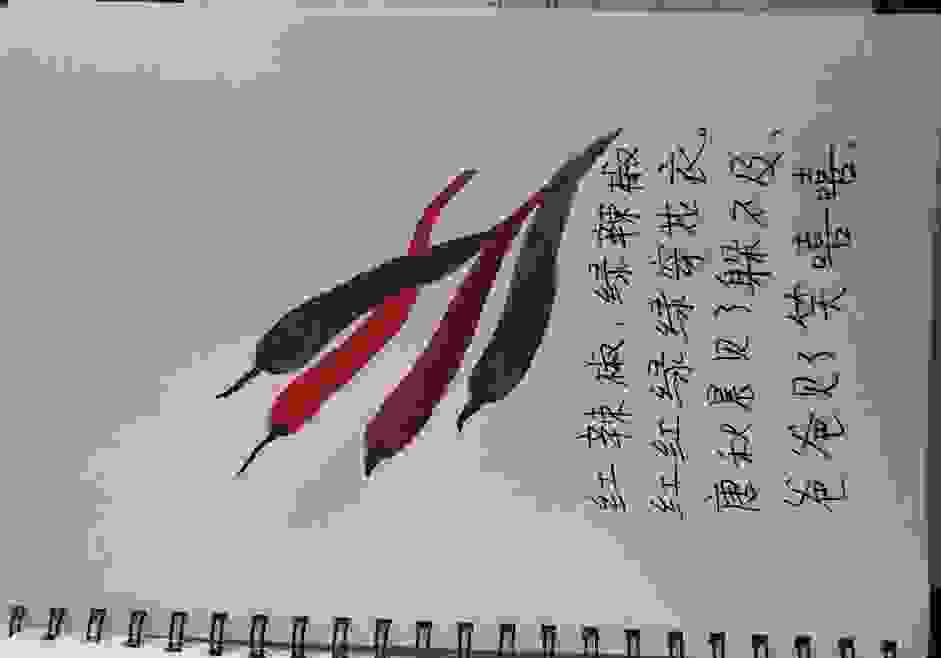 红辣椒、绿辣椒
红红绿绿穿花衣。
唐秋晨见了躲不及、
爸爸见了笑嘻嘻。